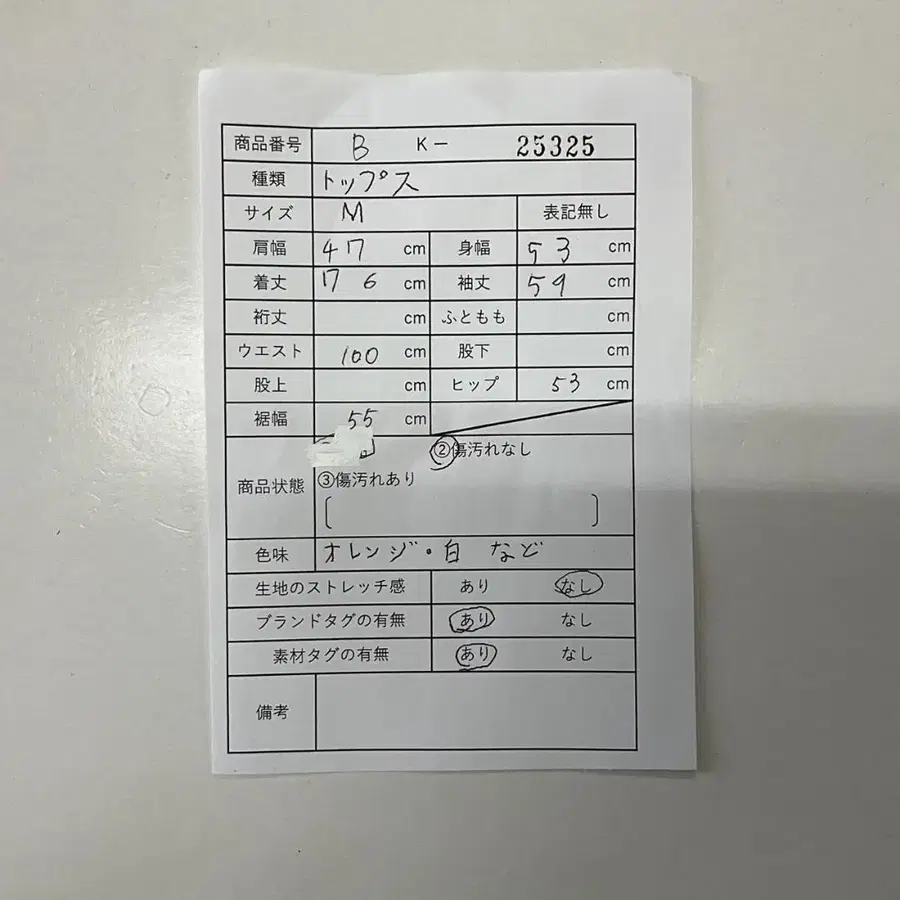 商品番号 B K- 25325
種類 トップス
サイズ M 表記無し
肩幅 47 cm 身幅 53 cm
着丈 76 cm 袖丈 59 cm
裄丈 cm ふともも cm
ウエスト 100 cm 股下 cm
股上 cm ヒップ 53 cm
裾幅 55 cm
②傷汚れなし
商品状態 ③傷汚れあり
[ ]
色味 オレンジ・白 など
生地のストレッチ感 あり なし
ブランドタグの有無 あり なし
素材タグの有無 あり なし
備考